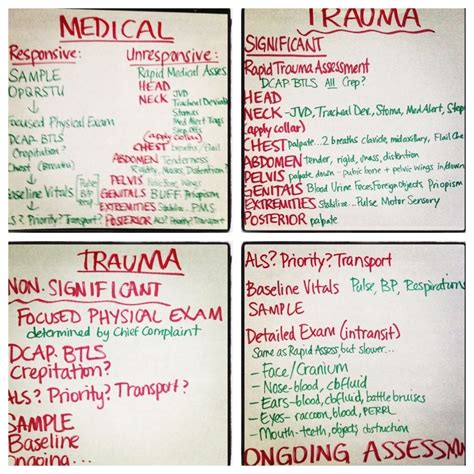 MEDICAL
Responsive:
SAMPLE
OPQRSTU
Focused Physical Exam
DCAP-BTLS
Crepitation?
Chest (Breaths)
Baseline Vitals [Pulse BP Temp]
ALS? Priority? Transport?
Unresponsive:
Rapid Medical Asses
HEAD
NECK JVD
Tracheal Deviation
Stomas
Med Alert Tags
Step Offs
(apply collar)
CHEST breaths/flail
ABDOMEN Tenderness
Rigidity, Masses, Distention
PELVIS
GENITALS BUFF Priopism
EXTREMITIES Stabilize... PMS
POSTERIOR ALS? Priority? Transport?
TRAUMA
SIGNIFICANT
Rapid Trauma Assessment
DCAP-BTLS All Crep?
HEAD
NECK -JVD, Tracheal Dev., Stoma, Med Alert, Step
(apply collar)
CHEST palpate...2 breaths clavicle, midaxillary, Flail Che
ABDOMEN tender, rigid, mass, distention
PELVIS palpate down - pubic bone + pelvic wings in/down
GENITALS Blood Urine Feces Foreign Objects Priopism
EXTREMITIES Stabilize...Pulse Motor Sensory
POSTERIOR palpate
TRAUMA
NON.SIGNIFICANT
FOCUSED PHYSICAL EXAM
determined by Chief Complaint
DCAP-BTLS
Crepitation?
ALS? Priority? Transport?
SAMPLE
Baseline
Ongoing...
ALS? Priority? Transport
Baseline Vitals Pulse, BP, Respirations
SAMPLE
Detailed Exam (intransit)
Same as Rapid Assess but slower...
- Face/Cranium
- Nose-blood, cbfluid
- Ears-blood, cbfluid, battle bruises
- Eyes- raccoon, blood, PERRL
- Mouth-teeth, objects obstruction
ONGOING ASSESSM